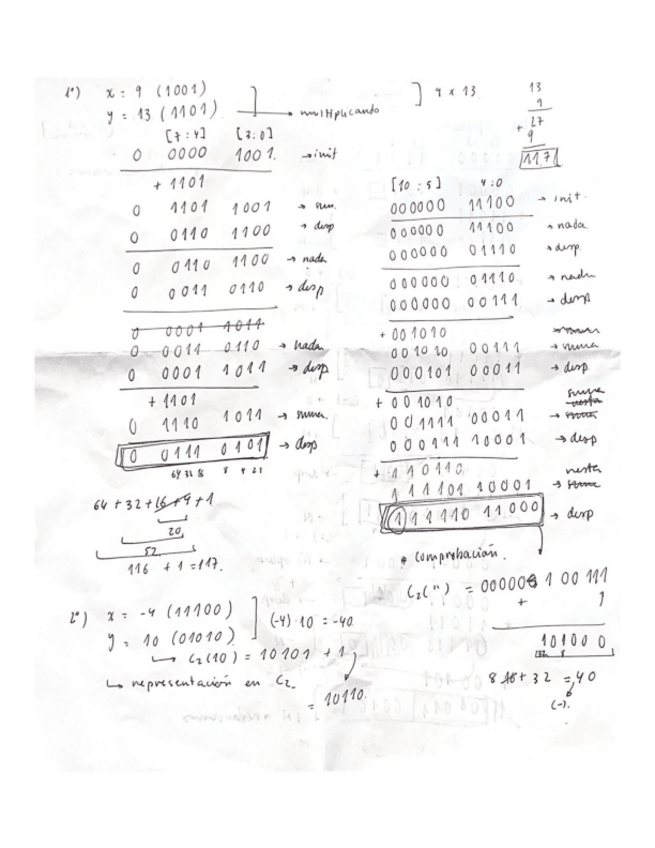 1º) x = 9 (1001)
y = 13 (1101) → multiplicando
[7:4] [3:0]
0 0000 1001 → init
+ 1101
0 1101 1001 → sum.
0 0110 1100 → desp
0 0110 1100 → nada
0 0011 0110 → desp
0 0001 1011
0 0011 0110 → nada
0 0001 1011 → desp
+ 1101
0 1110 1011 → suma.
0 0111 0101 → desp
64 32 16 8 4 2 1
64 + 32 + 16 + 4 + 1
20
52
116 + 1 = 117.
2º) x = -4 (11100)
y = 10 (01010)
(-4)·10 = -40
↳ C2(10) = 10101 + 1
↳ representación en C2.
= 10110.
9 x 13
13
9
27
+ 9
117
[10 : 5] 4:0
000000 11100 → init.
000000 11100 → nada.
000000 01110 → desp.
000000 01110 → nada
000000 00111 → desp
+ 001010
001010 00111 → suma
000101 00011 → desp
+ 001010 suma
001111 00011
000111 10001 → desp
+ 110110 resta
1 11101 10001
1 11110 11000 → desp
* comprobación.
C2(") = 00000 1 00 111
+ 1
10100 0
8 + 32 = 40
(-).